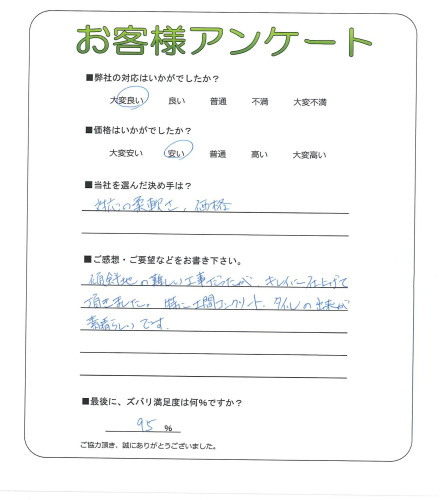 お客様アンケート
■弊社の対応はいかがでしたか？
大変良い 良い 普通 不満 大変不満
■価格はいかがでしたか？
大変安い 安い 普通 高い 大変高い
■当社を選んだ決め手は？
対応の柔軟さ、価格
■ご感想・ご要望などをお書き下さい。
傾斜地の難しい工事だったが、キレイに仕上げて
頂きました。特に土間コンクリート、タイルの出来が
素晴らしいです。
■最後に、ズバリ満足度は何%ですか？
95 %
ご協力頂き、誠にありがとうございました。